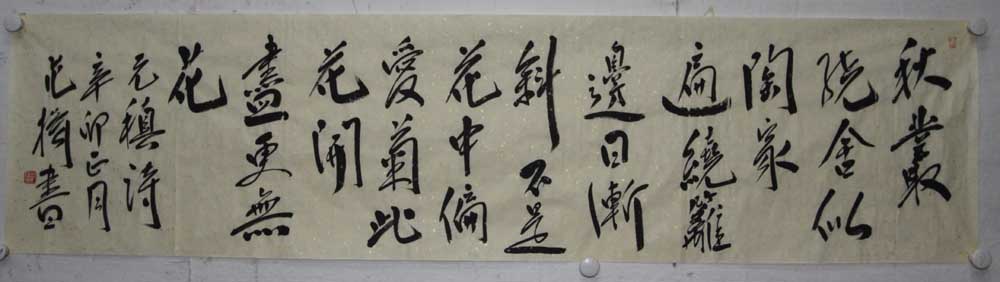 秋叢
繞舍似
陶家
遍繞籬
邊日漸
斜不是
花中偏
愛菊此
花開
盡更無
花
元稹詩
辛卯正月
書